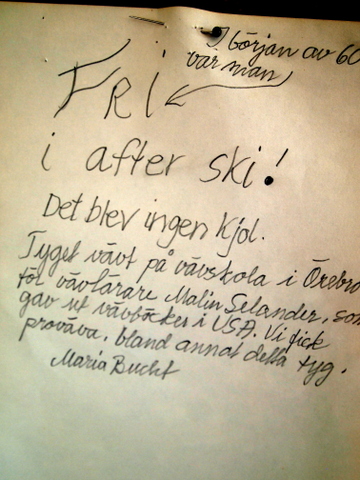 I början av 60
var man
FRi
i after ski!
Det blev ingen kjol.
Tyget vävt på vävskola i Örebro
för vävlärare Malin Selander, som
gav ut vävböcker i USA. Vi fick
provväva, bland annat detta tyg.
Maria Bucht